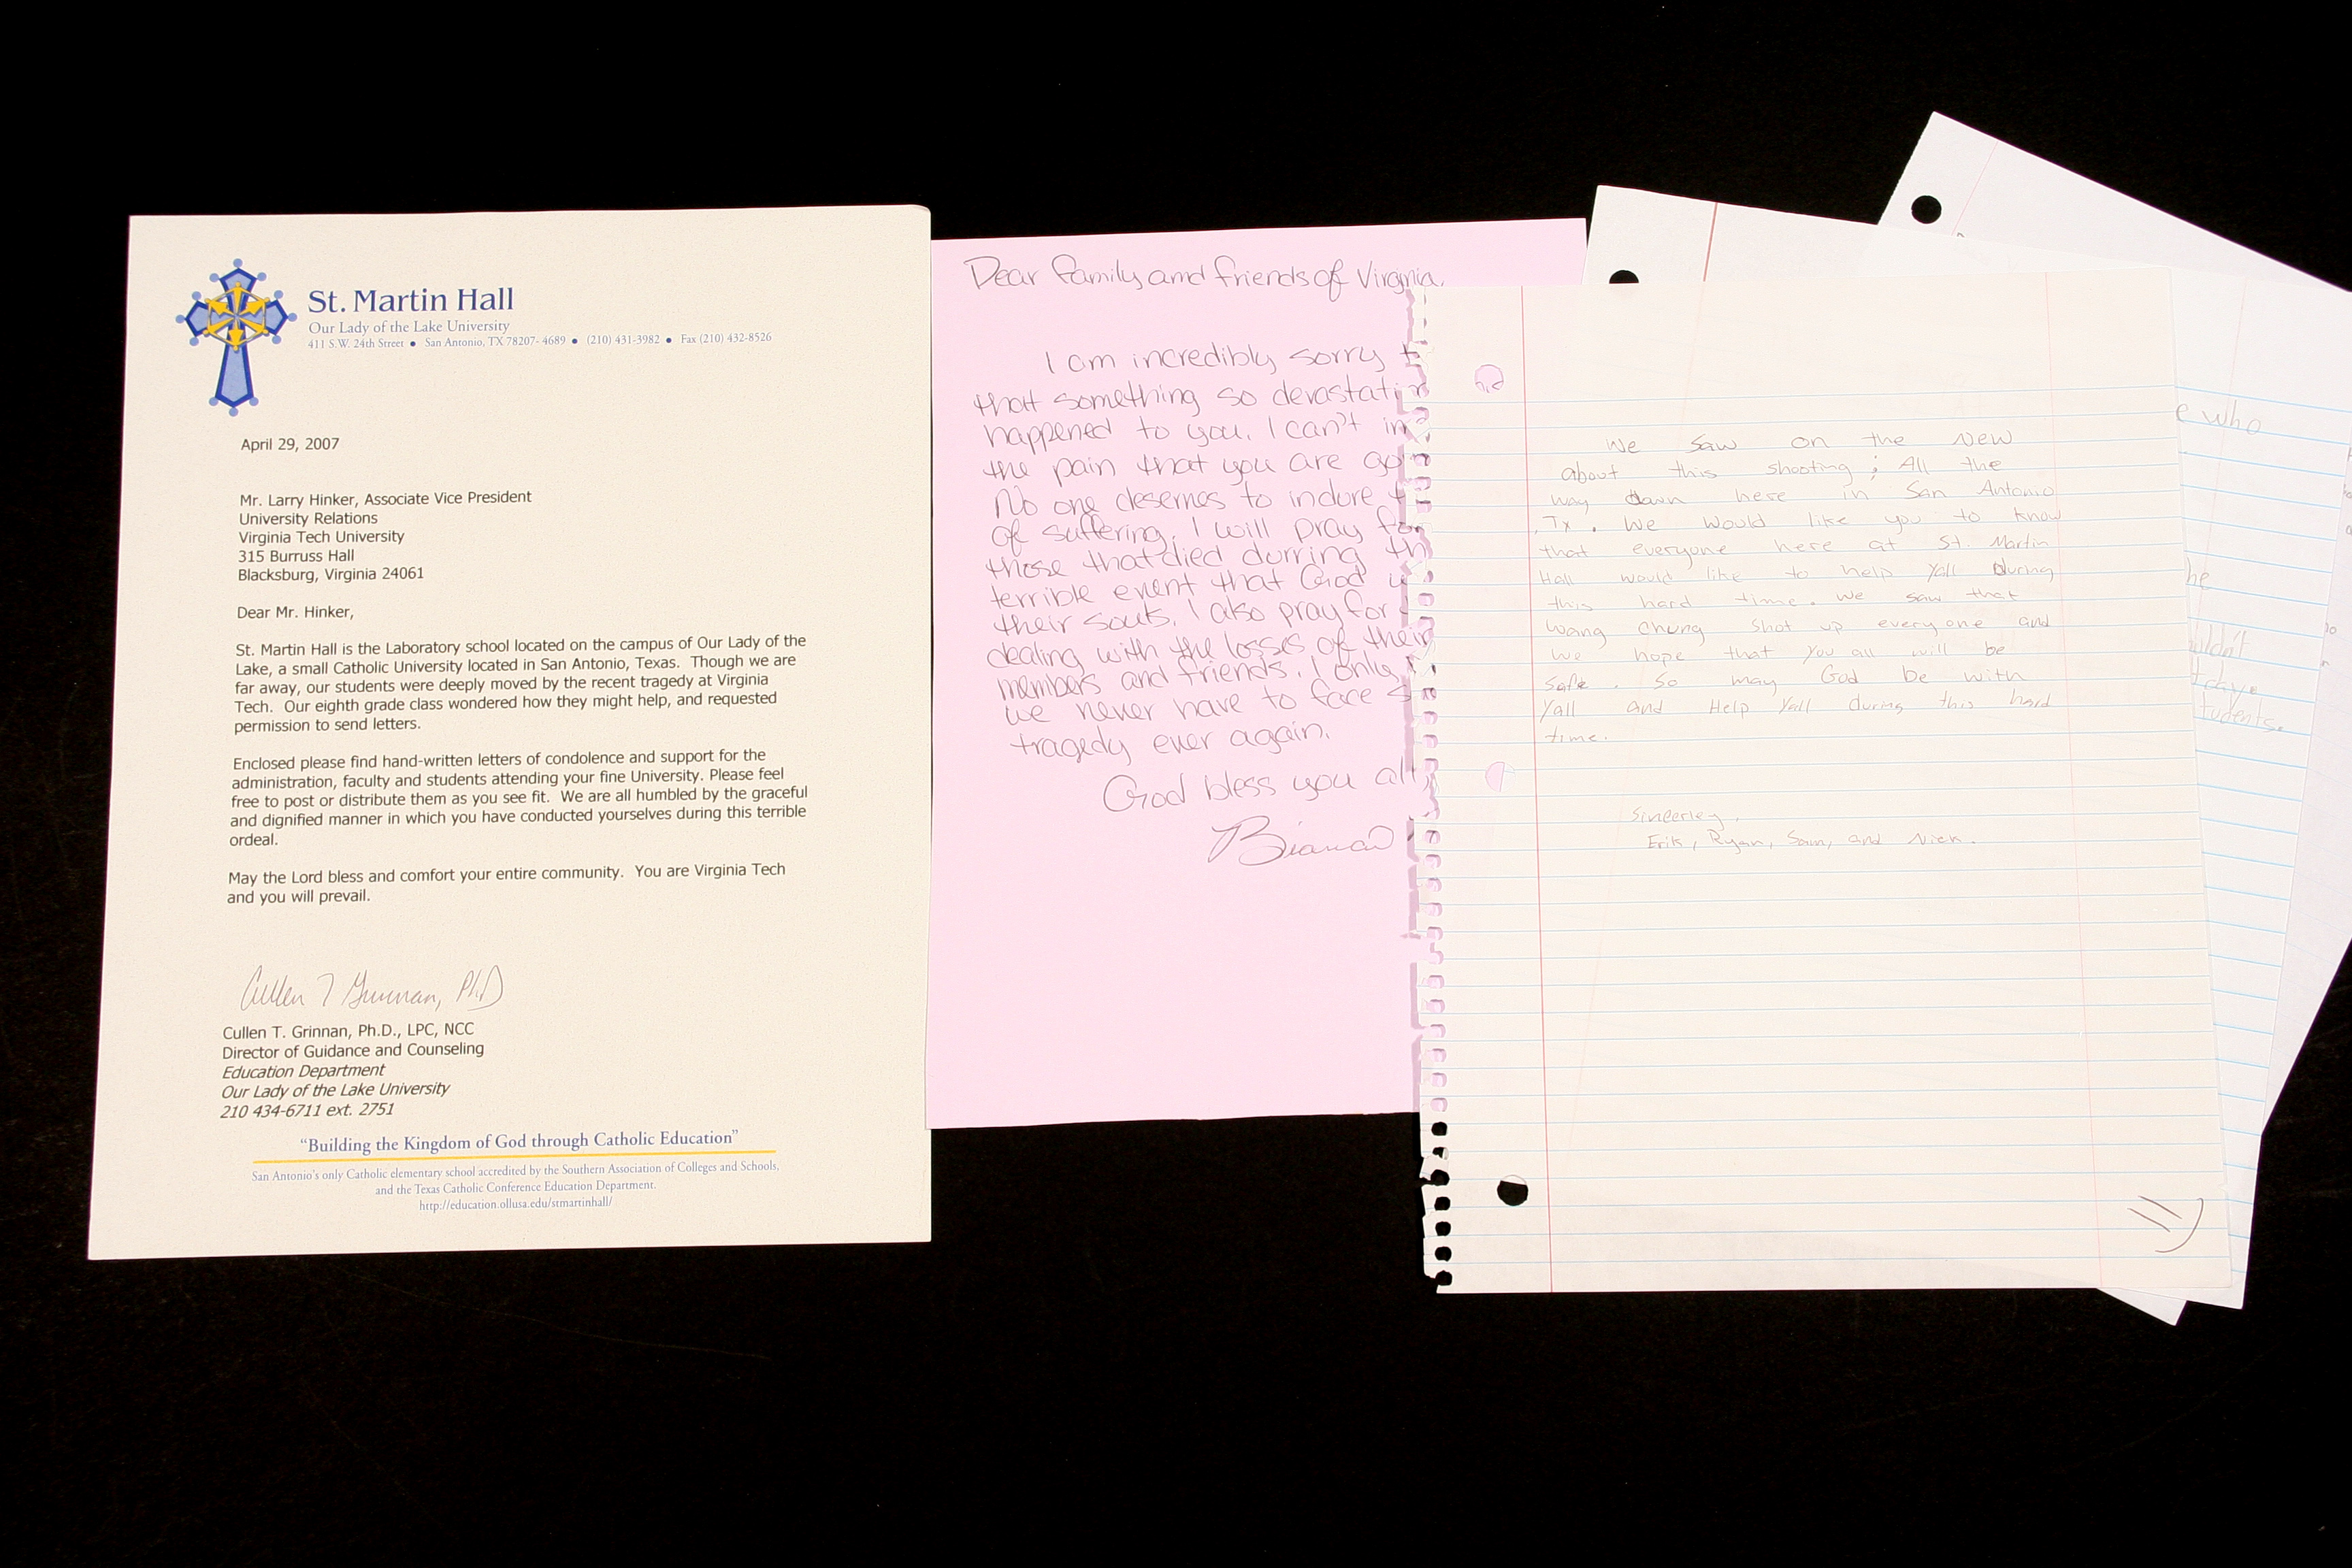 St. Martin Hall
Our Lady of the Lake University
411 S.W. 24th Street • San Antonio, TX 78207-4689 • (210) 431-3982 • Fax (210) 432-8526
April 29, 2007
Mr. Larry Hinker, Associate Vice President
University Relations
Virginia Tech University
315 Burruss Hall
Blacksburg, Virginia 24061
Dear Mr. Hinker,
St. Martin Hall is the Laboratory school located on the campus of Our Lady of the
Lake, a small Catholic University located in San Antonio, Texas. Though we are
far away, our students were deeply moved by the recent tragedy at Virginia
Tech. Our eighth grade class wondered how they might help, and requested
permission to send letters.
Enclosed please find hand-written letters of condolence and support for the
administration, faculty and students attending your fine University. Please feel
free to post or distribute them as you see fit. We are all humbled by the graceful
and dignified manner in which you have conducted yourselves during this terrible
ordeal.
May the Lord bless and comfort your entire community. You are Virginia Tech
and you will prevail.
Cullen T Grinnan, PhD
Cullen T. Grinnan, Ph.D., LPC, NCC
Director of Guidance and Counseling
Education Department
Our Lady of the Lake University
210 434-6711 ext. 2751
"Building the Kingdom of God through Catholic Education"
San Antonio's only Catholic elementary school accredited by the Southern Association of Colleges and Schools,
and the Texas Catholic Conference Education Department.
http://education.ollusa.edu/stmartinhall/
Dear family and friends of Virginia,
I am incredibly sorry
that something so devastati
happened to you. I can't im
the pain that you are goi
No one desernes to indure
of suffering. I will pray for
those that died durring th
terrible event that God
their souls. I also pray for
dealing with the losses of their
members and friends. I only
we never have to face s
tragedy ever again.
God bless you all,
Bianca
We saw on the New
about this shooting; All the
way down here in San Antonio
, Tx. We would like you to know
that everyone here at St. Martin
Hall would like to help Yall During
this hard time. We saw that
Wang Chung shot up everyone and
we hope that you all will be
safe. So may God be with
Yall and Help Yall during this hard
time.
Sincerley,
Erik, Ryan, Sam, and Nick.
=)
e who
he
uldn't
tudents.